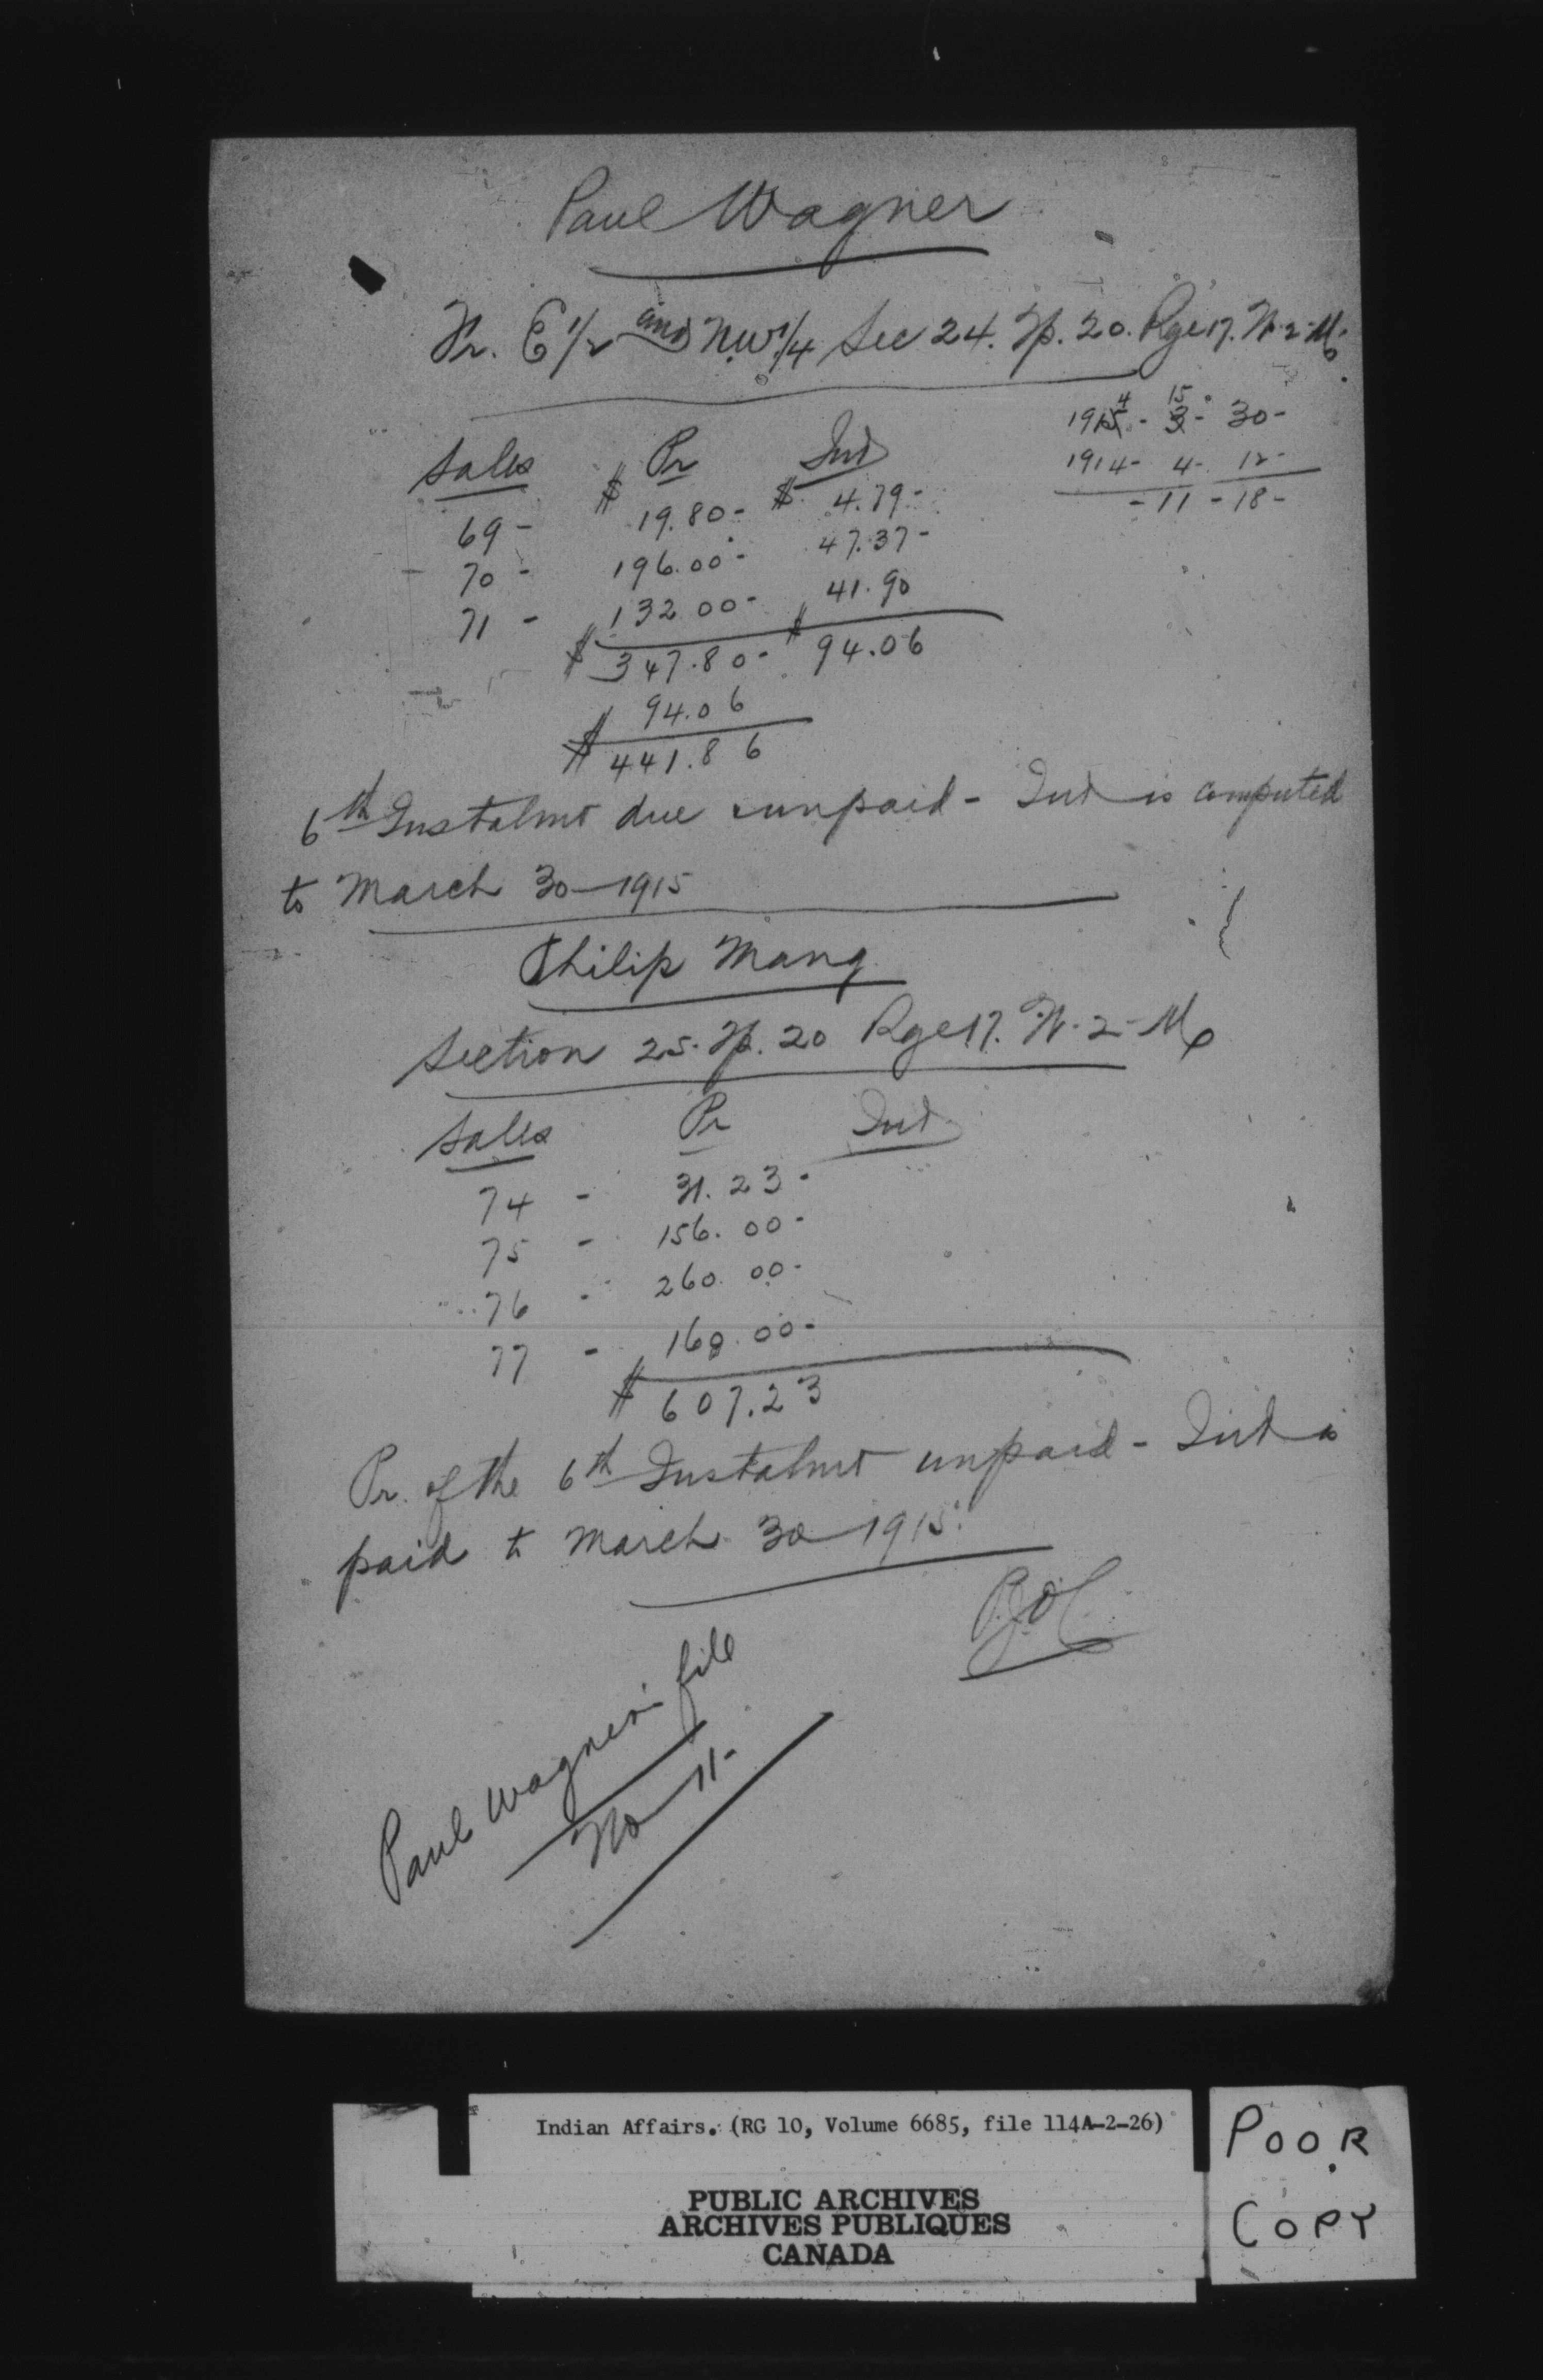 Paul Wagner
Fr. E 1/2 and N.W 1/4 Sec 24. Tp. 20. Rge 17. W. 2. M.
4 15
1915 - 3 - 30 -
1914 - 4 - 12 -
- 11 - 18 -
Sales Pr Int
69 - $ 19.80 - $ 4.79 -
70 - 196.00 - 47.37 -
71 - 132.00 - 41.90
$ 347.80 - $ 94.06
94.06
$ 441.86
6th Instalmt due unpaid - Int is computed
to March 30 - 1915
Philip Mang
Section 25. Tp. 20 Rge 17. W. 2 - M
Sales Pr Int
74 - 31.23 -
75 - 156.00 -
76 - 260.00 -
77 - 160.00 -
$ 607.23
Pr. of the 6th Instalmt unpaid - Int is
paid to March 30 - 1915.
Paul Wagner's file
No 11 -
Indian Affairs. (RG 10, Volume 6685, file 114A-2-26)
PUBLIC ARCHIVES
ARCHIVES PUBLIQUES
CANADA
POOR
COPY